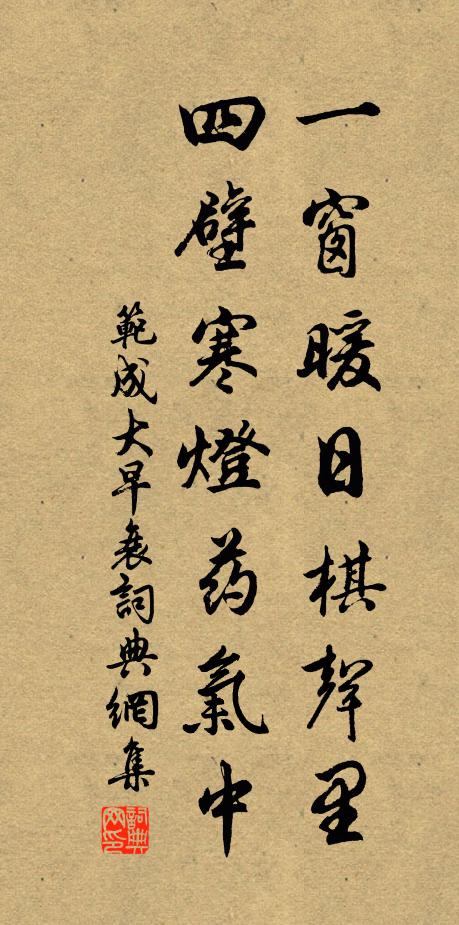 一窗暖日棋聲里
四壁寒燈药氣中
範成大早衰詞典網集
詞典網印